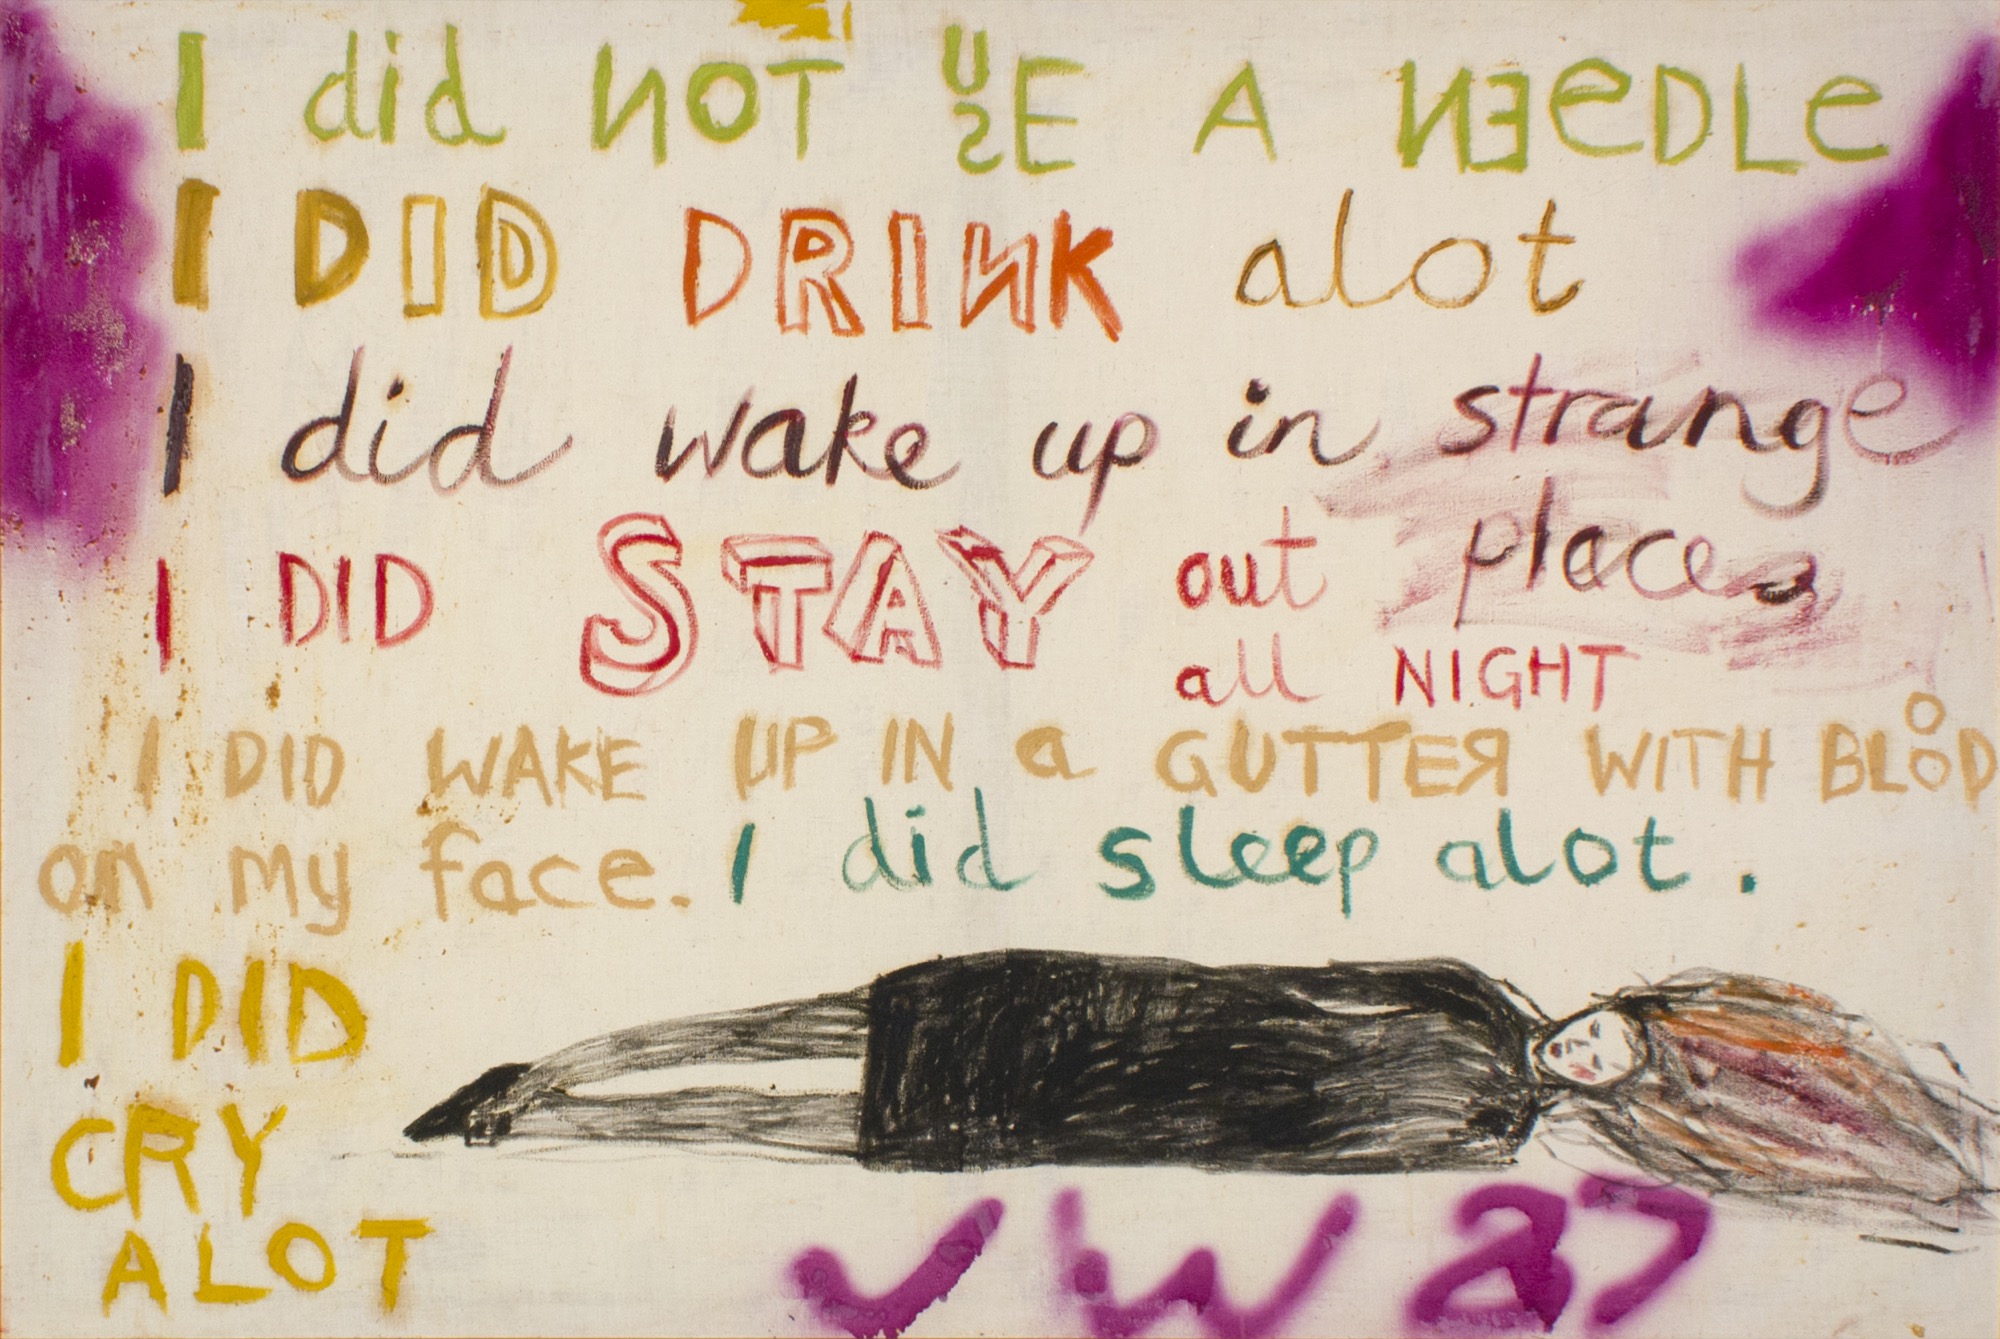 I did NOT USE A NEEDLe
I DID DRINK alot
I did wake up in strange
places
I DID STAY out
all NIGHT
I DID WAKE UP IN a GUTTER WITH BLOOD
on my face. I did sleep alot.
I DID
CRY
ALOT